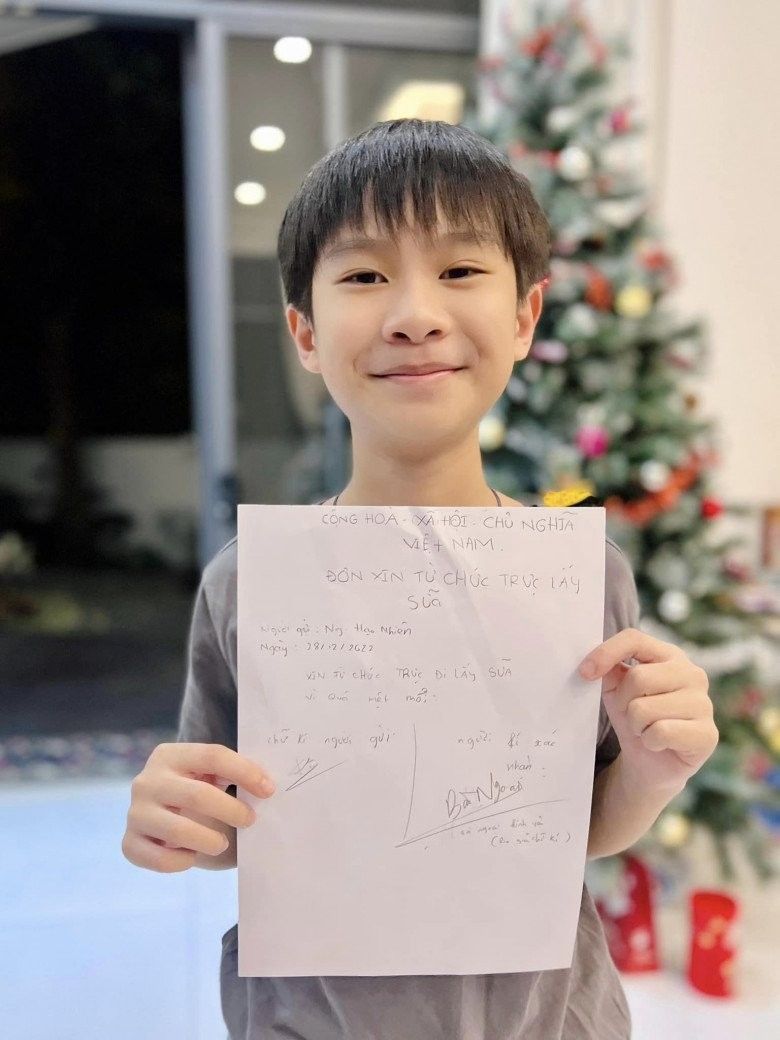 CỘNG HOÀ - XÃ HỘI - CHỦ NGHĨA
VIỆT NAM.
ĐƠN XIN TỪ CHỨC TRỰC LẤY
SỮA
Người gửi: Ng. Hạo Nhiên
Ngày: 28/12/2022
XIN TỪ CHỨC TRỰC ĐI LẤY SỮA
Vì quá mệt mỏi.
chữ kí người gửi
người kí xác
nhận:
Bà Ngoại
bà ngoại
chữ kí)